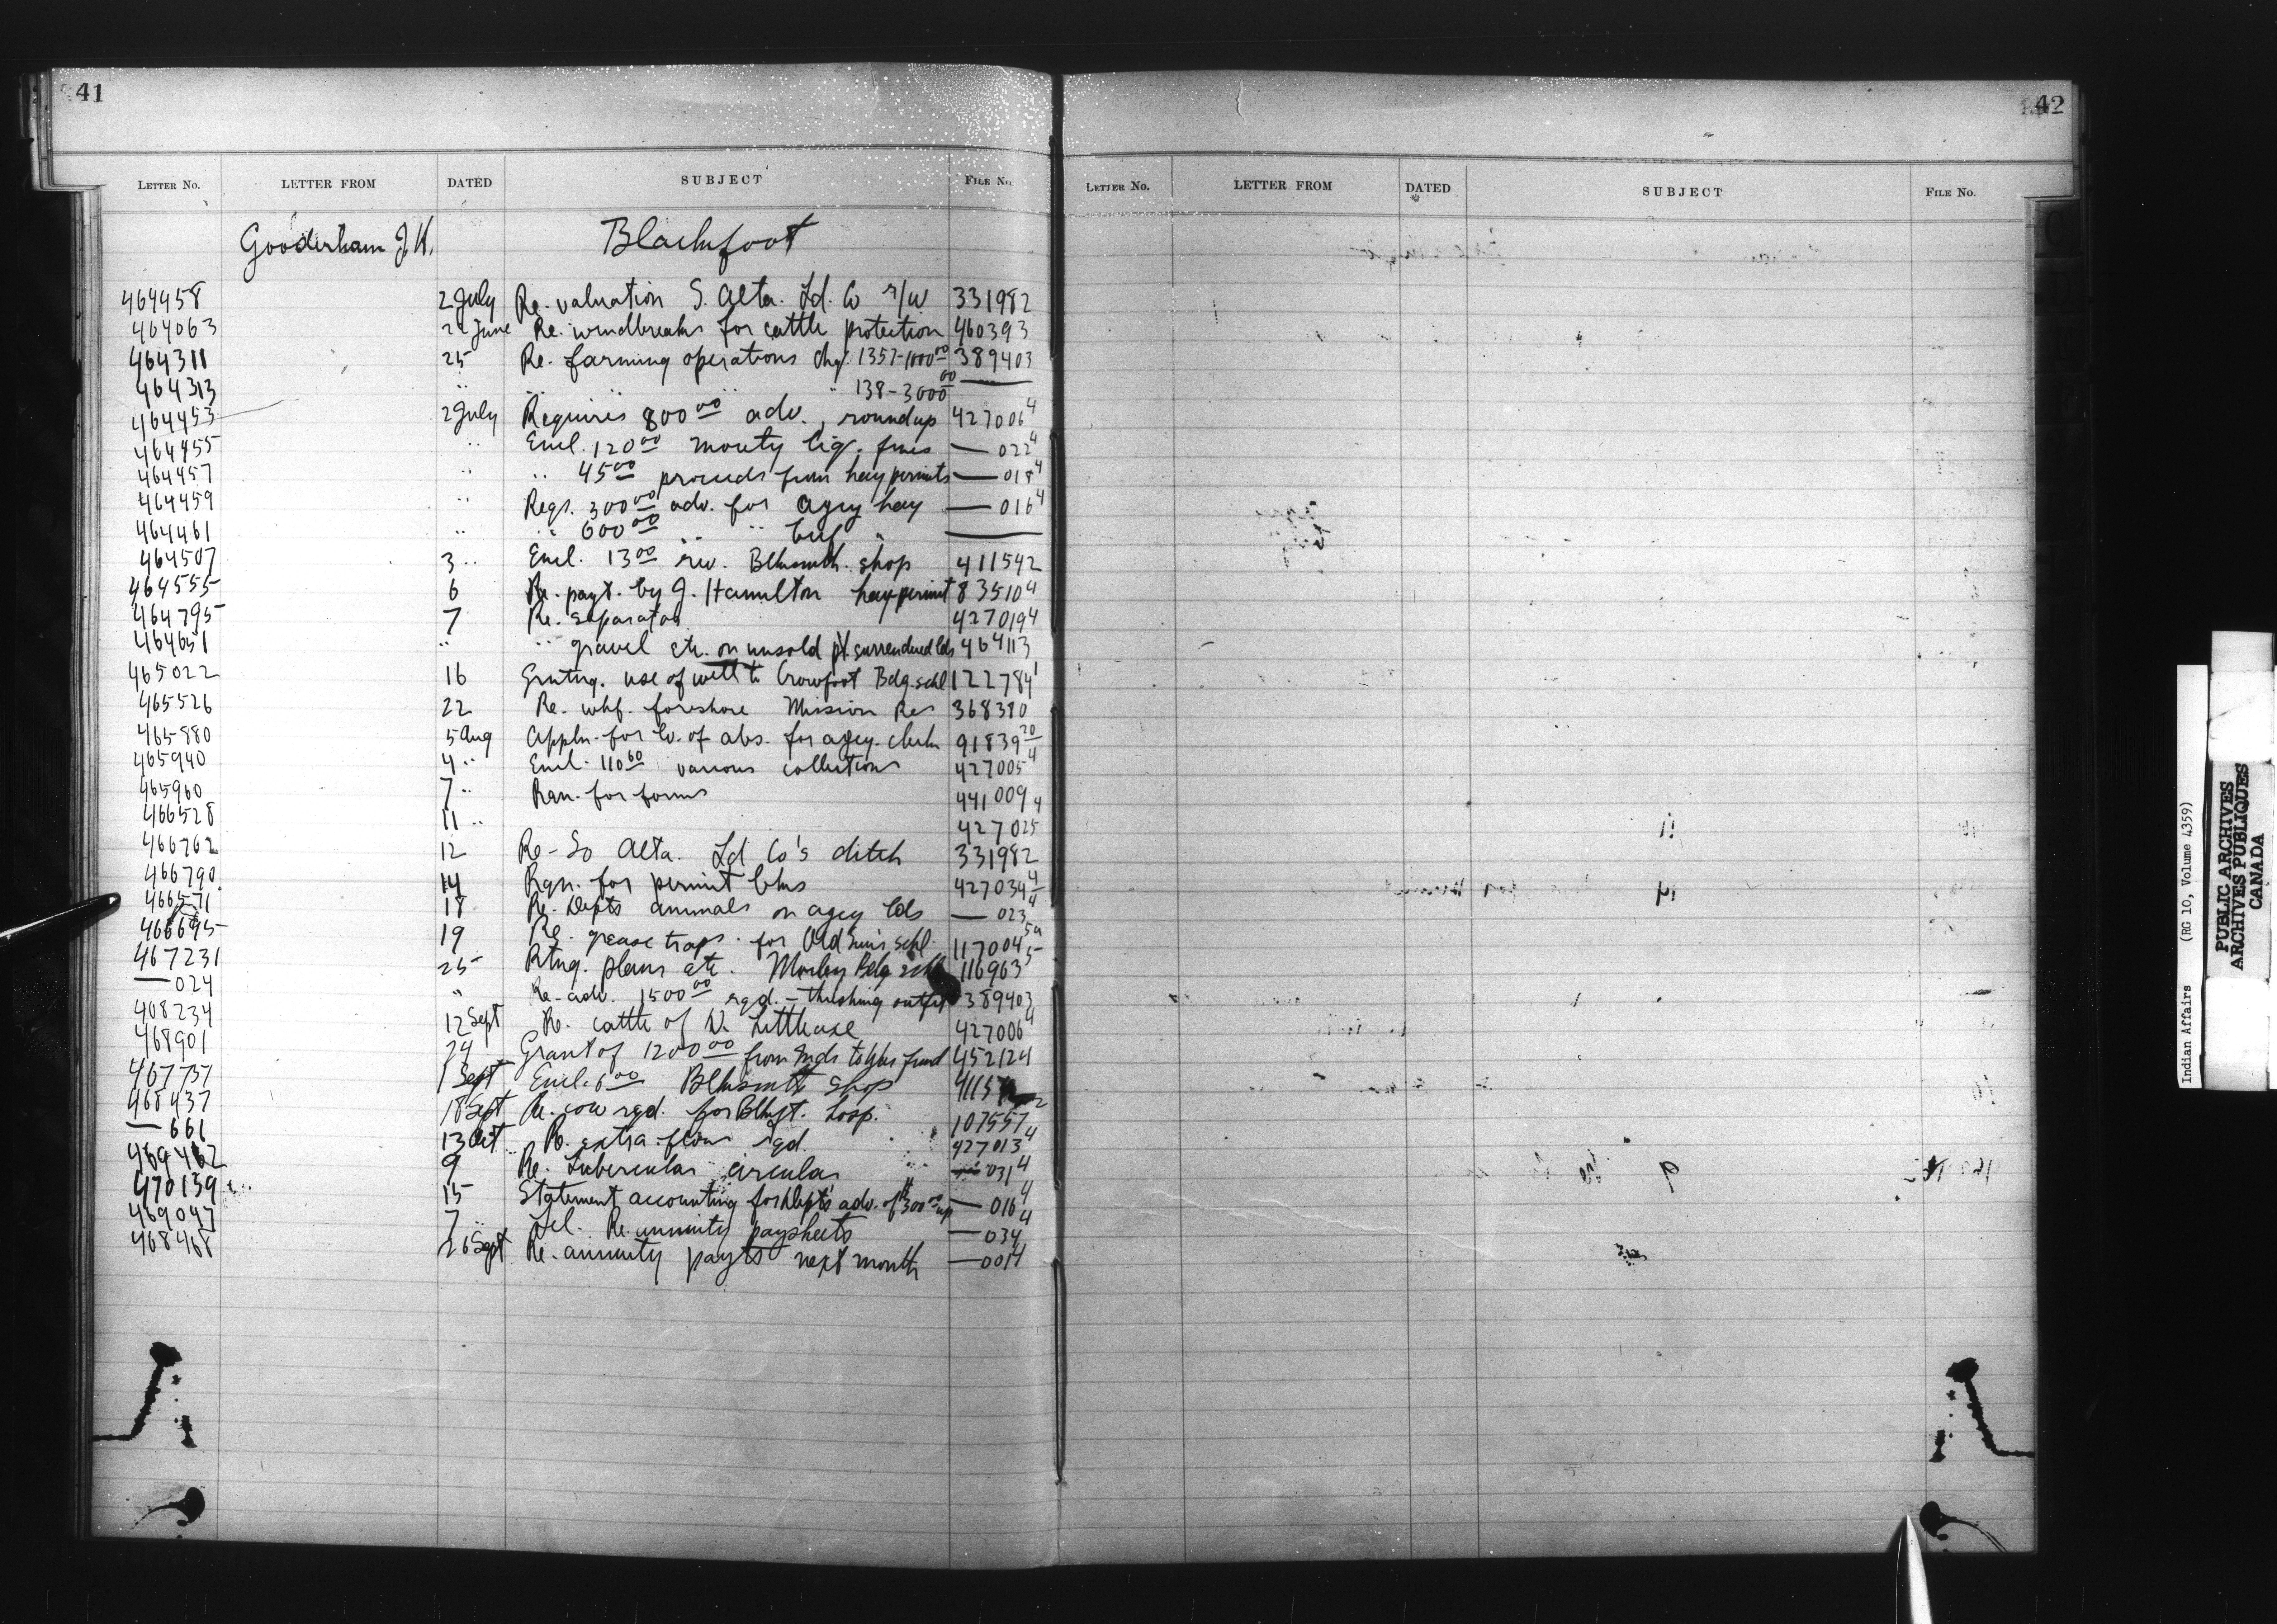 41
42
LETTER No. LETTER FROM DATED SUBJECT FILE No.
LETTER No. LETTER FROM DATED SUBJECT FILE No.
Gooderham J. H. Blackfoot
464458 2 July Re. valuation S. Alta. Ld. Co r/w 331982
464063 2 June Re. windbreaks for cattle protection 460393
464311 25 Re. farming operations chq. 1357-1000 00 389403
464313 " " " " 138-3000 00 —
464453 2 July Requires 800 00 adv., roundup 427006 4
464455 " Encl. 120 00 mouty liq. fines — 022 4
464457 " " 45 00 proceeds from hay permits — 018 4
464459 " Reqs. 300 00 adv. for agcy hay — 016 4
464461 " " 600 00 " " beef " —
464507 3 " Encl. 13 00 rev. Blksmith. shop 411542
464555 6 Re. payt. by J. Hamilton hay permit 83510 4
464795 7 Re. separator 427019 4
464651 " " gravel etc. on unsold pt. surrendered lds 464113
465022 16 Grntng. use of well to Crowfoot Bdg. schl 122784 1
465526 22 Re. whf. foreshore Mission Res 368380
465880 5 Aug Appln. for lv. of abs. for agcy. clerk 91839 20
465940 4 " Encl. 110 60 various collections 427005 4
465960 7 " Rqn. for forms 441009
466528 11 " 427025 4
466762 12 Re- So Alta. Ld Co's ditch 331982
466790 14 Rqn. for permit bks 427034 4
466571 18 Re. Depts animals on agcy lds — 023 4
466695 19 Re. grease traps. for Old Sun's schl. 117004 5a
467231 25 Rtng. plans etc. Morley Bdg schl 116963 5
— 024 " Re-adv. 1500 00 rqd. - threshing outfit 389403
468234 12 Sept Re. cattle of W. Littleaxe 427006 4
468901 24 Grant of 1200 00 from Inds to War fund 452124
467737 1 Sept Encl. 6 00 Blksmth shop 4115 2
468437 18 Sept Re. cow rqd. for Blkft. hosp. 107557
— 661 13 Oct Re. extra flour rqd. 427013 4
469462 9 Re. Tubercular circular 031 4
470139 15 Statement accounting for Dept's adv. of $300 00 — 016 4
469047 7 " Tel. Re. annuity paysheets — 034 4
468468 26 Sept Re. annuity payts next month — 001 4
Indian Affairs (RG 10, Volume 4359)
PUBLIC ARCHIVES
ARCHIVES PUBLIQUES
CANADA